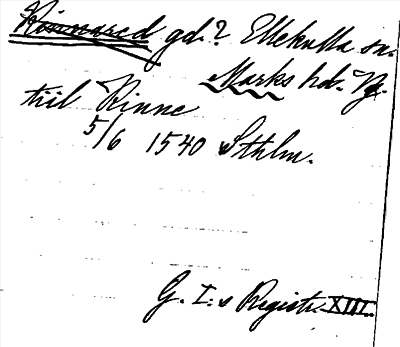 Kinnared gd.? Ellekulla sn.
Marks hd. Vg.
till Rinne
5/6 1540 Sthlm.
G. I:s Registr. XIII.